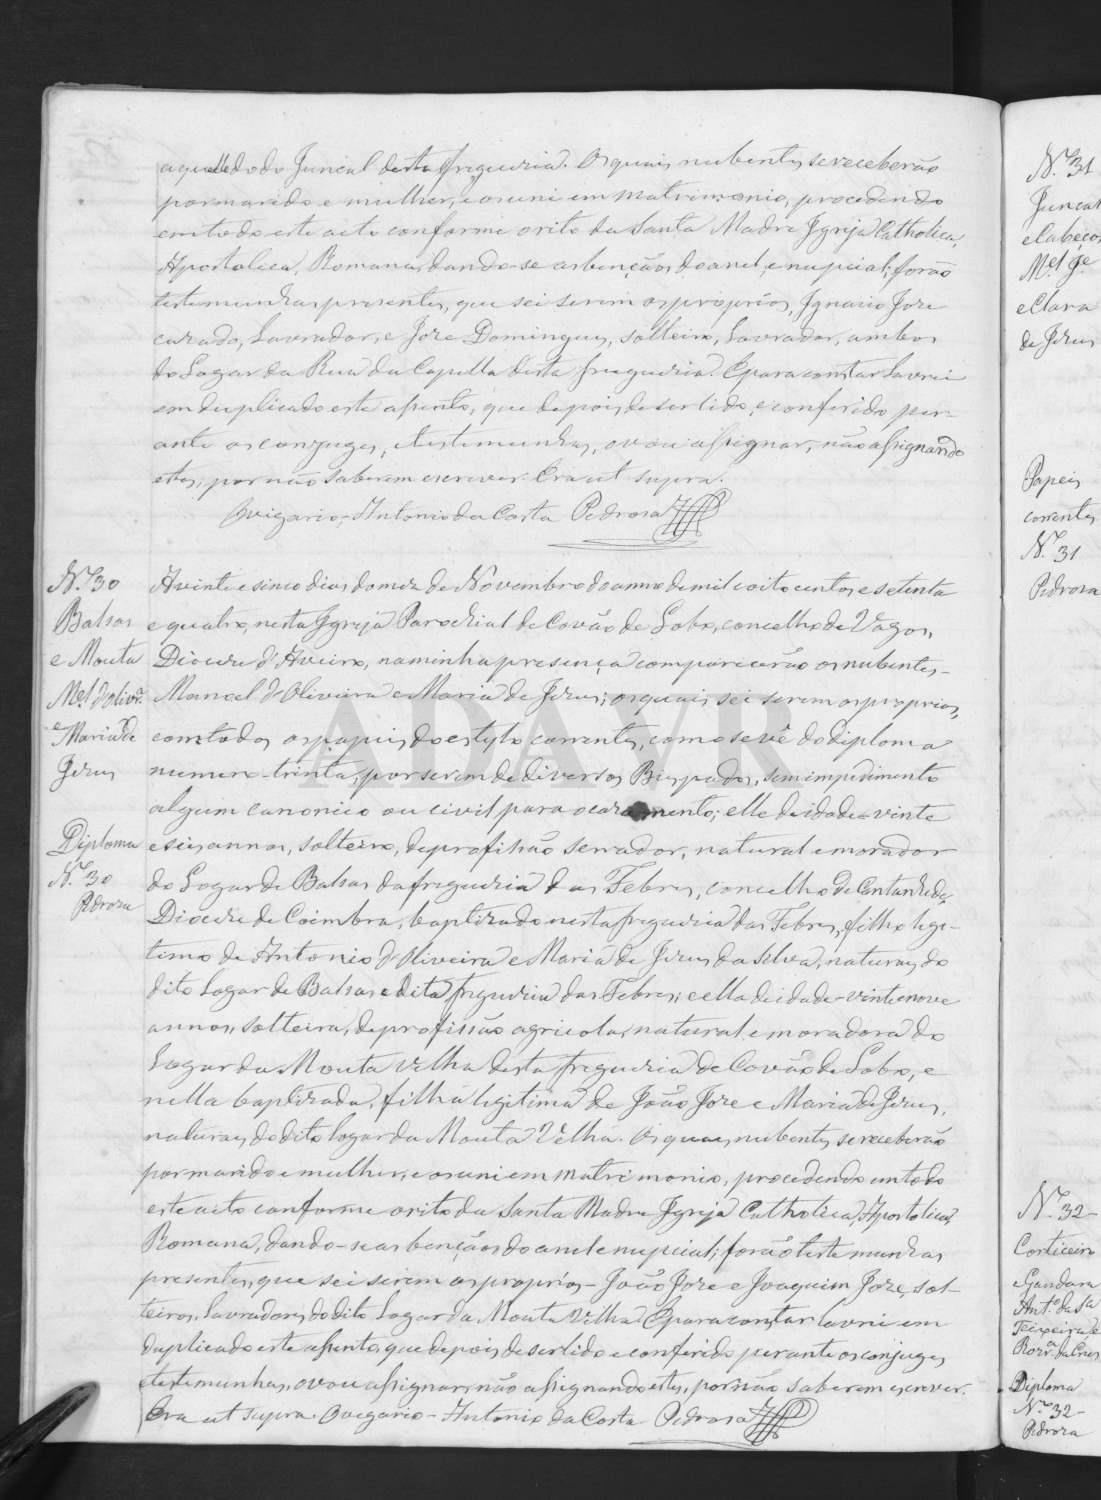 aquelle do do Juncal desta freguezia. Os quaes nubentes se receberão
por marido e mulher, e os uni em Matrimonio, procedendo
em todo este acto conforme o rito da Santa Madre Igreja Catholica,
Apostolica, Romana, dando-se as bençãos do anel, e nupcial; forão
testemunhas presentes, que sei serem os proprios, Ignacio Joze
cazado, Lavrador, e Joze Domingues, solteiro, Lavrador, ambos
do Logar da Rua da Capella desta freguezia. E para constar lavrei
em duplicado este assento, que depois de ser lido, e conferido per-
ante os conjuges, e testemunhas, o vou assignar, não assignando
estes, por não saberem escrever. Era ut supra.
O vigario, Antonio da Costa Pedroza
N.º 30
Balsas
e Mouta
M.el d'Olivr.ª
e Maria de
Jezus
Diploma
N.º 30
Pedroza
A vinte e sinco dias do mez de Novembro do anno de mil e oito centos e setenta
e quatro, nesta Igreja Parochial de Covão de Lobo, concelho de Vagos,
Diocese d'Aveiro, na minha presença comparecerão os nubentes-
Manoel d'Oliveira e Maria de Jezus; os quaes sei serem os proprios,
com todos os papeis do estylo correntes, como se vê do diploma
numero-trinta, por serem de diversos Bispados, sem impedimento
algum canonico ou civil para o cazamento; elle de idade-vinte
e seis annos, solteiro, de profissão serrador, natural e morador
do Logar de Balsas da freguezia das Febres, concelho de Cantanhede,
Diocese de Coimbra, baptizado nesta freguezia das Febres, filho legi-
timo de Antonio d'Oliveira e Maria de Jezus da Silva, naturaes do
dito Logar de Balsas e dita freguezia das Febres; e ella de idade-vinte nove
annos, solteira, de profissão agricola, natural e moradora do
Logar da Mouta Velha desta freguezia de Covão de Lobo, e
nella baptizada, filha legitima de João Joze e Maria de Jezus,
naturaes do dito logar da Mouta Velha. Os quaes nubentes se receberão
por marido e mulher, e os uni em Matrimonio, procedendo em todo
este acto conforme o rito da Santa Madre Igreja Catholica, Apostolica,
Romana, dando-se as bençãos do anel e nupcial; forão testemunhas
presentes, que sei serem os proprios-João Joze e Joaquim Joze, sol-
teiros, lavradores, do dito Logar da Mouta Velha. E para constar lavrei em
duplicado este assento, que depois de ser lido e conferido perante os conjuges
e testemunhas, o vou assignar, não assignando estes, por não saberem escrever.
Era ut supra. O vigario-Antonio da Costa Pedroza
ADAVR
N.º 31
Juncal
e Cabeços
M.el J.e
e Clara
de Jezus
Papeis
correntes
N.º 31
Pedroza
N.º 32-
Corticeiro
e Gandara
Ant.º da S.ª
Teixeira e
Roz.ª da Cruz
Diploma
N.º 32-
Pedroza